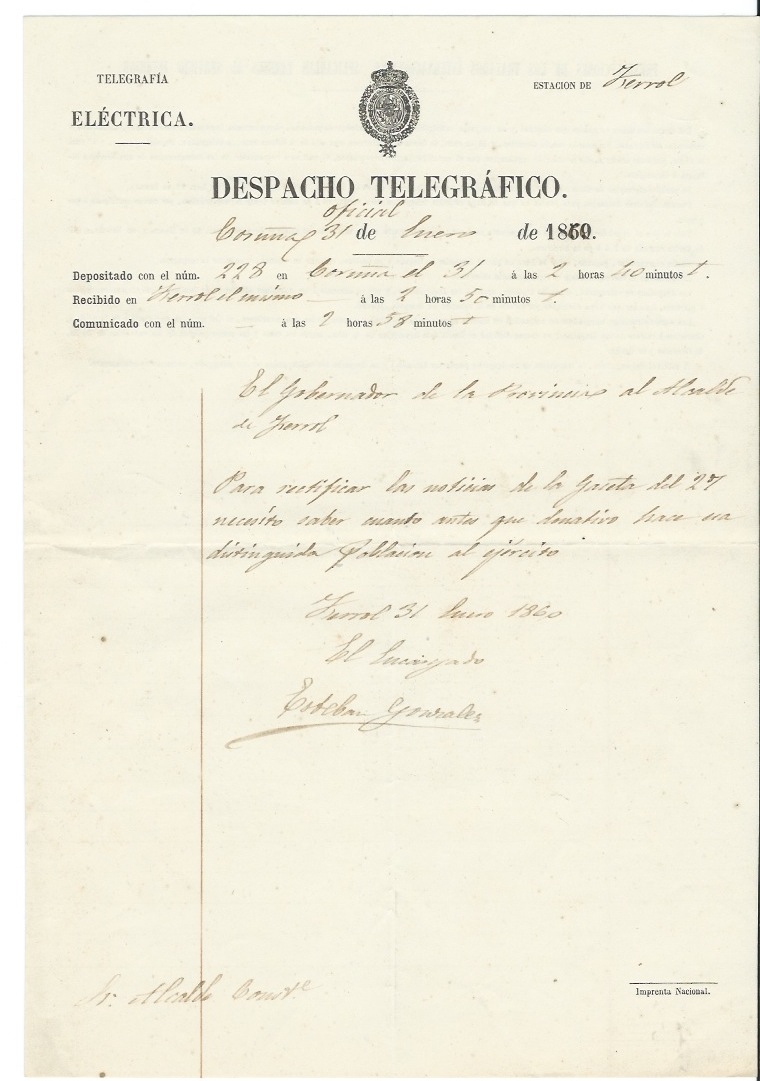 TELEGRAFÍA
ELÉCTRICA.
ESTACION DE Ferrol
DESPACHO TELEGRÁFICO.
oficial
Coruña 31 de Enero de 1860.
Depositado con el núm. 228 en Coruña el 31 á las 2 horas 40 minutos t.
Recibido en Ferrol el mismo — á las 2 horas 50 minutos t.
Comunicado con el núm. — á las 2 horas 58 minutos t
El Gobernador de la Provincia al Alcalde
de Ferrol
Para rectificar las noticias de la Gaceta del 27
necesito saber cuanto antes que donativo hace esa
distinguida Poblacion al ejército
Ferrol 31 Enero 1860
El Encargado
Esteban Gonzalez
Sr. Alcalde Const.e
Imprenta Nacional.